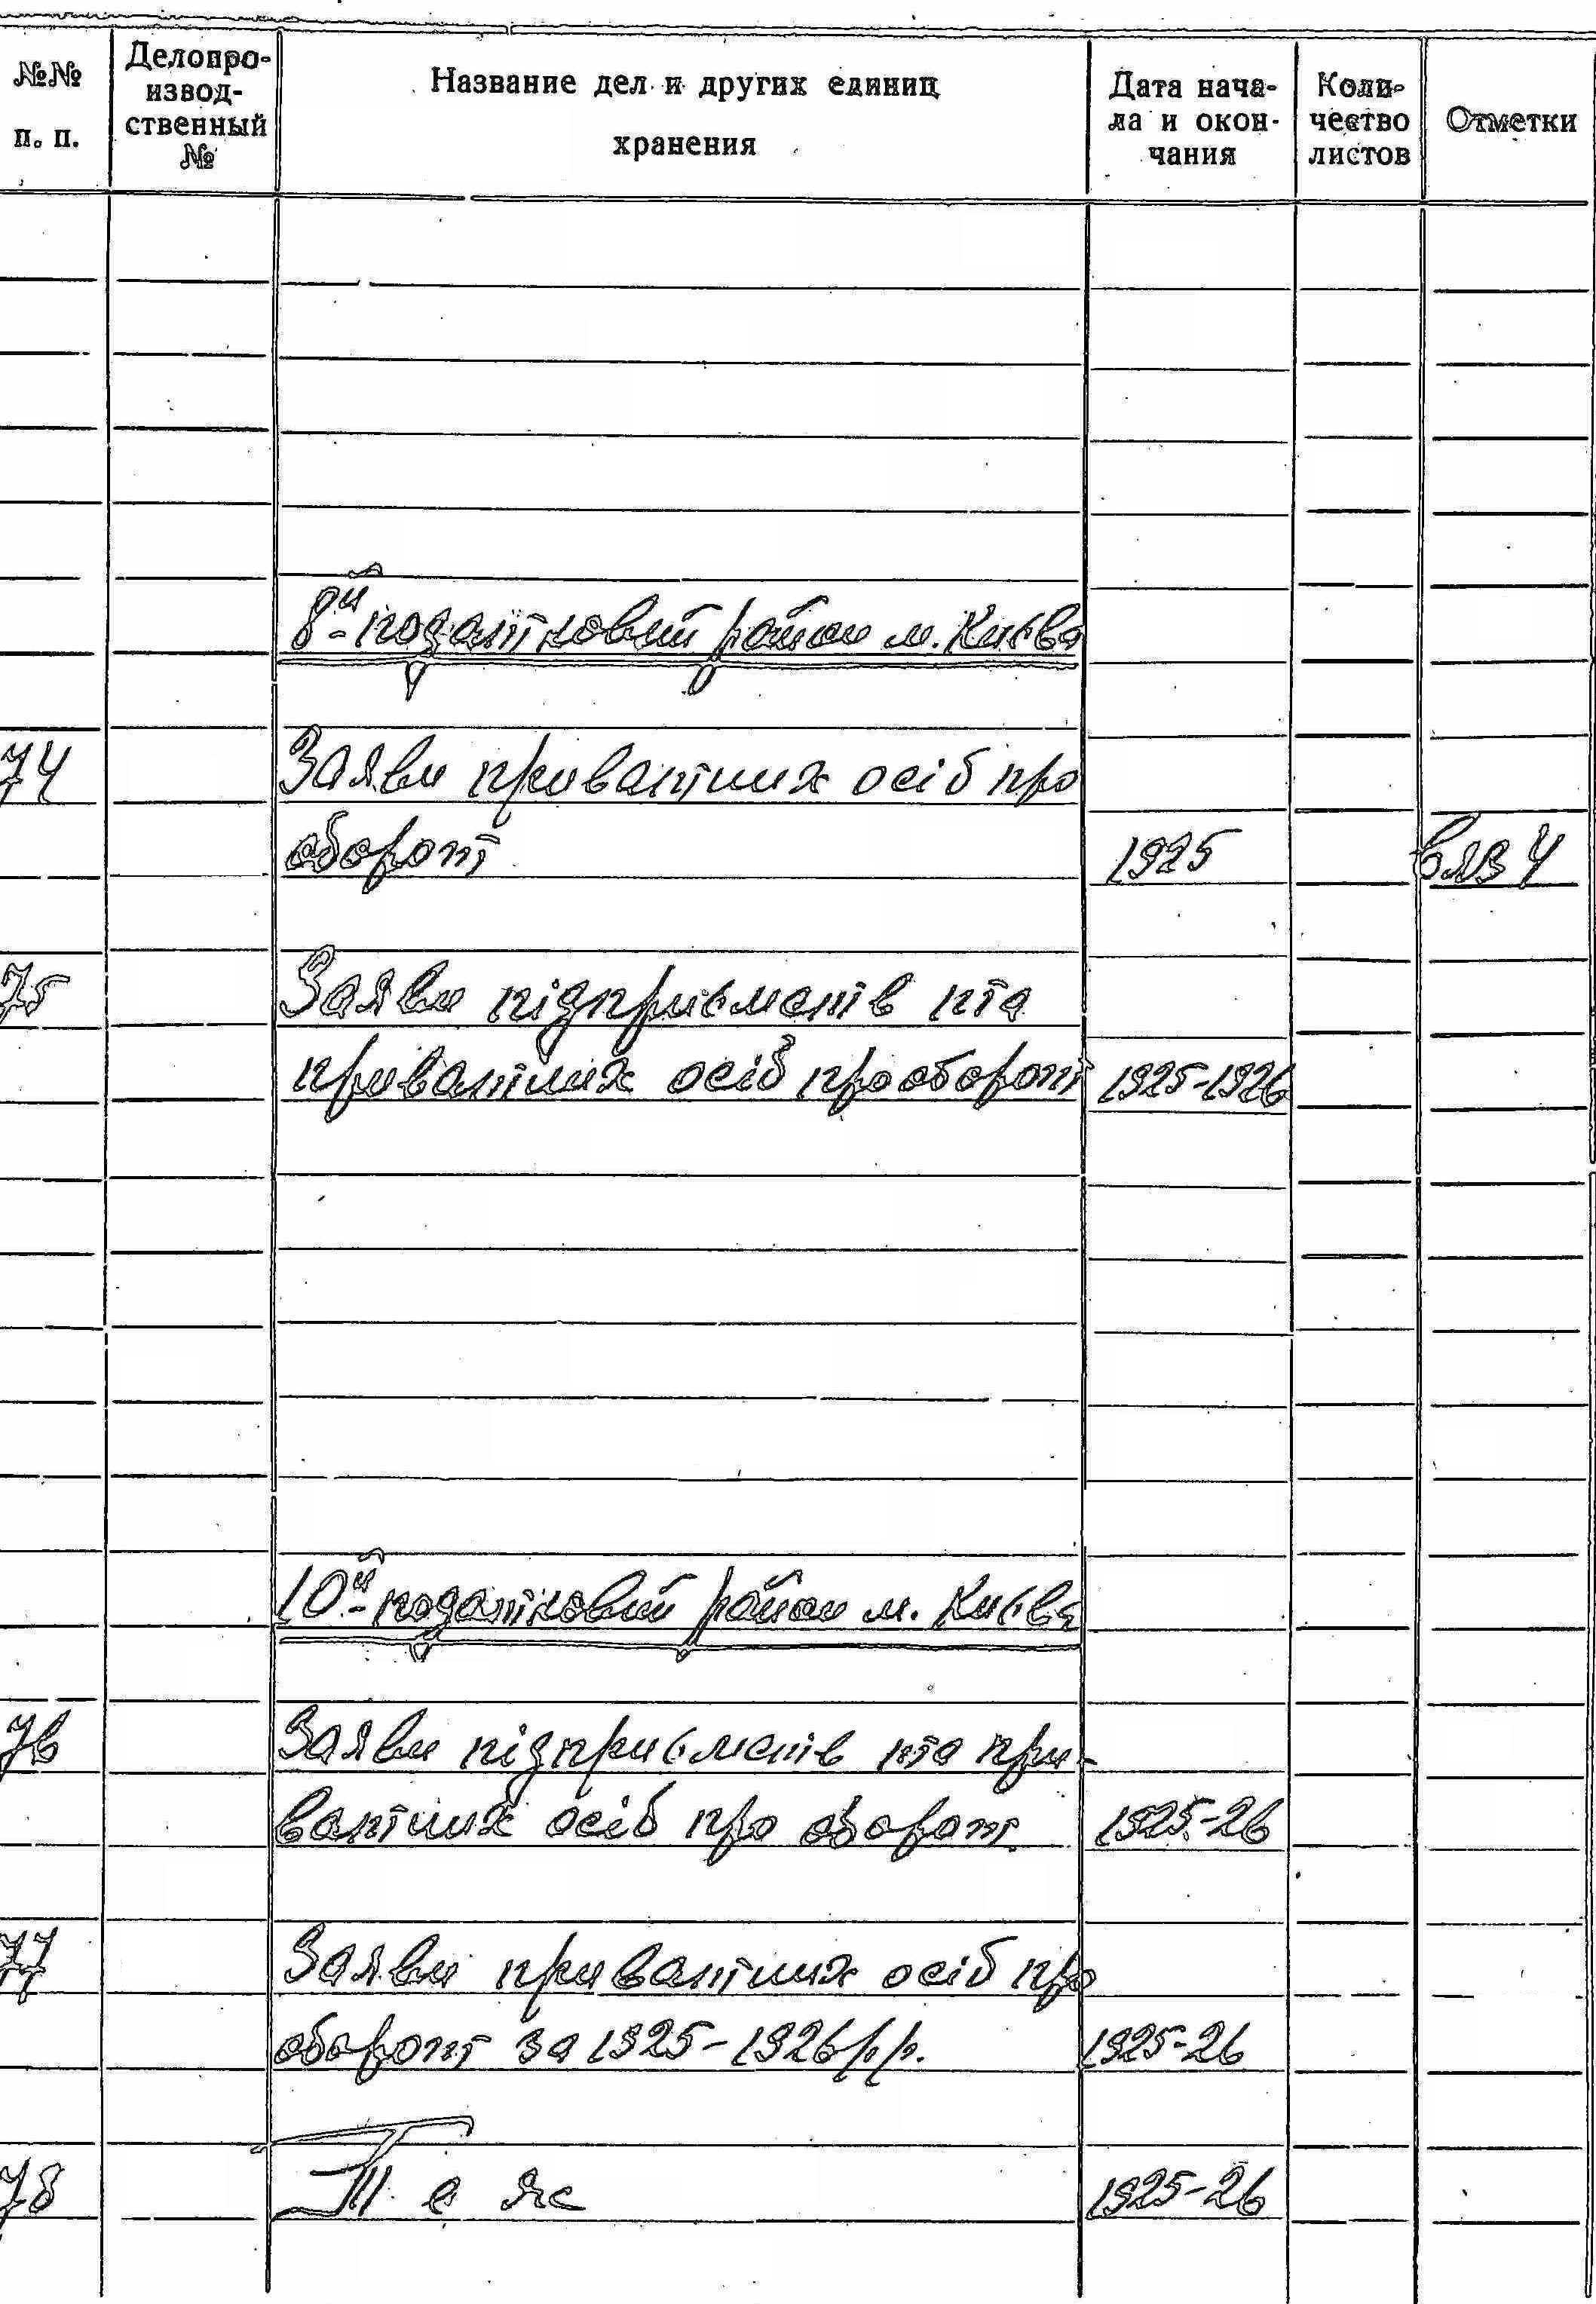 №№ п. п.
Делопро-
извод-
ственный
№
Название дел и других единиц
хранения
Дата нача-
ла и окон-
чания
Коли-
чество
листов
Отметки
8й податковий район м. Києва
74 Заяви приватних осіб про
оборот 1925
75 Заяви підприємств та
приватних осіб про оборот 1925-1926
10й податковий район м. Києва
76 Заяви підприємств та при-
ватних осіб про оборот 1925-26
77 Заяви приватних осіб про
оборот за 1925-1926 р.р. 1925-26
78 Те же 1925-26